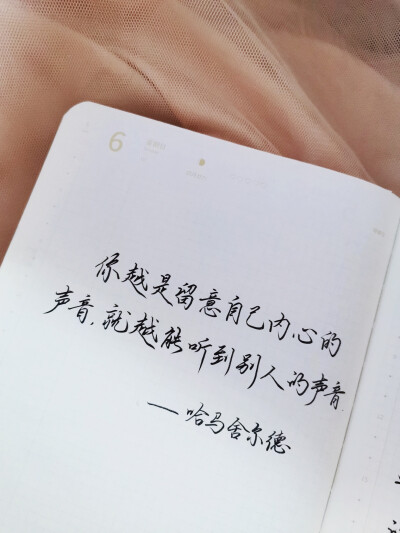 6
你越是留意自己内心的
声音,就越能听到别人的声音.
——哈马舍尔德